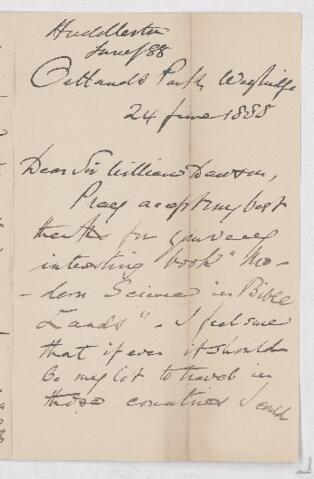 Huddleston
June/88
Oatlands Park, Weybridge
24 June 1888
Dear Sir William Dawson,
Pray accept my best
thanks for your very
interesting book "Mo-
-dern Science in Bible
Lands". I feel sure
that if ever it should
be my lot to travel in
those countries I could